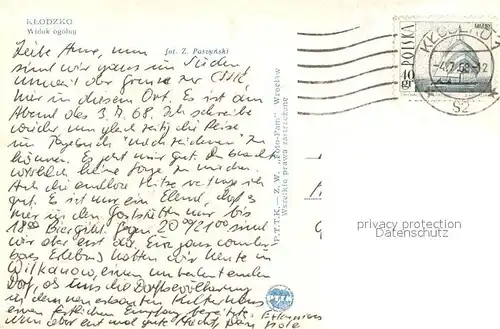 KŁODZKO
Widok ogólny
fot. Z. Paszyński
Liebe Anne, nun
sind wir ganz im Süden,
unweit der Grenze zur ČSSR
hier in diesem Ort. Es ist am
Abend des 3.7.68. Ich schreibe
wieder um gleichzeitig die Reise
im Tagebuch "nachzeichnen" zu
können. Es geht mir gut. Du brauchst
wirklich keine Sorge zu machen.
Auch die endlose Hitze vertrage ich
gut. Es ist nur ein Elend, daß es
hier in den Gaststätten nur bis
18.00 Bier gibt. Gegen 20.00/21.00 sind
wir aber erst da. Ein ganz wunder-
bares Erlebnis hatten wir heute in
Wilkanow, einem unbedeutenden
Dorf, als uns die Dorfbevölkerung
in dem neuerbauten Kulturhaus
einen festlichen Empfang bereitete.
Nun aber erst mal gute Nacht, Dein
P.T.T.K. - Z. W. „Foto-Pam” Wrocław
Wszelkie prawa zastrzeżone
PTTK
POLSKA
40 gr
KŁODZKO
-4.7.68-12
2
privacy protection
www.ansichtskarten-center.de